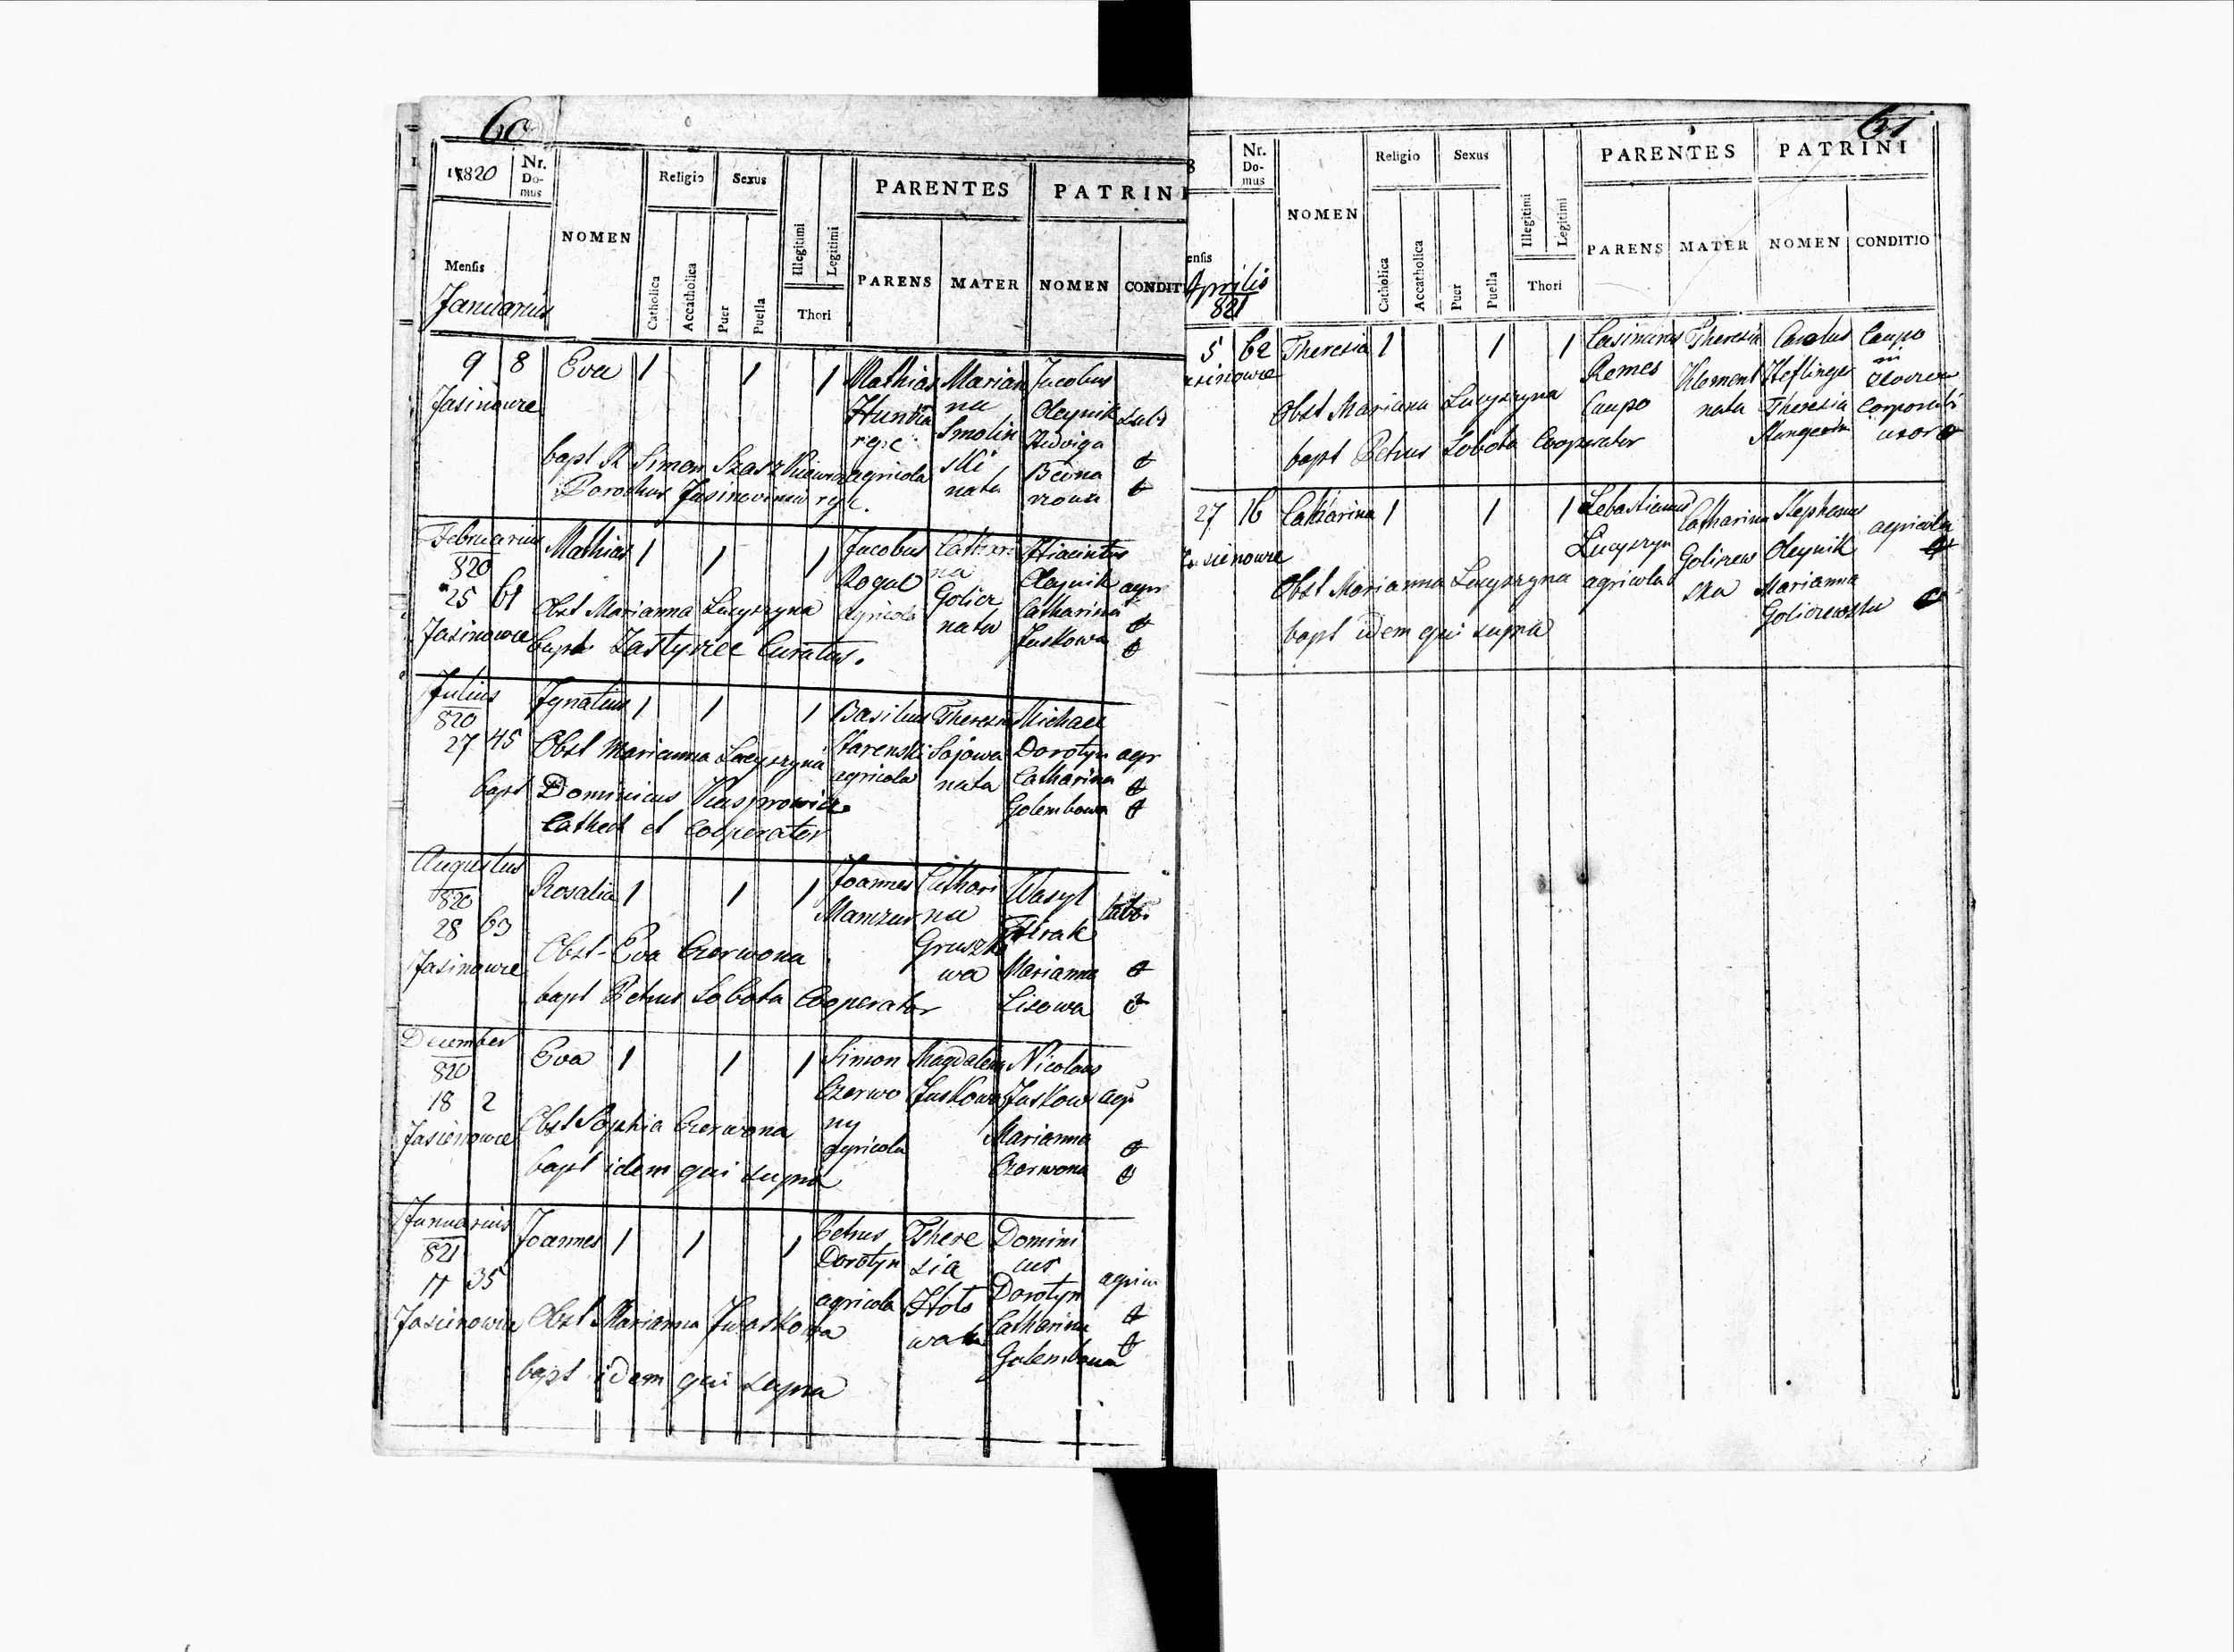 60
1820 Nr. Domus NOMEN Religio Sexus PARENTES PATRINI
Catholica Accatholica Puer Puella Illegitimi Legitimi Thori PARENS MATER NOMEN CONDITI
Mensis
Januarius
9 8 Eva 1 1 1 Mathias Marian Jacobus
Jasinowce na Oleynik
Smolin Adviga
bapt R Simon agricola ski
Parochus nata
Februarius Mathias 1 1 1 Jacobus Cathari Hiacintus
820 Rogal na Oleynik agr
25 61 Obst Marianna Lucyszyna agricola Golicz Catharina
Jasinowce bapt Zastyrzec Curatus. nata Juskowa
Julius Ignatius 1 1 1 Basilius Theresia Michael
820
27 45 Obst Marianna Lucyszyna Starenski Sojowa Dorotyn agr
agricola nata Catharina
bapt Dominicus Kasprowicz Golembowa
Cathed et Cooperator
Augustus Rosalia 1 1 1 Joannes Cathari Wasyl
820 Mamzur na
28 63 Gruszko
Jasinowce Obst Eva Czerwona wa Marianna
bapt Petrus Sobota Cooperator Lisowa
December Eva 1 1 1 Simon Magdalena Nicolaus
820 Czerwo Juskowa Juskow agr
18 2 Obst Sophia Czerwona ny Marianna
Jasienowce agricola Czerwona
bapt idem qui supra
Januarius Joannes 1 1 1 Petrus There Domini
821 Dorotyn sia cus
17 35 agricola Dorotyn
Jasienowce Obst Marianna Juraskowa Catharina
Golembowa
bapt idem qui supra
61
Nr. Domus NOMEN Religio Sexus PARENTES PATRINI
Catholica Accatholica Puer Puella Illegitimi Legitimi Thori PARENS MATER NOMEN CONDITIO
ensis
Aprilis
821
5 62 Theresia 1 1 1 Casimirus Theresia Carolus Caupo
Remes Klement Heflinger in
Obst Mariana Lucyszyna Caupo nata Theresia
bapt Petrus Sobota Cooperator uxor
27 16 Catharina 1 1 1 Sebastianus Catharina Stephanus agricola
Lucyszyn Goliszew Oleynik
Obst Marianna Lucyszyna agricola ska Marianna
bapt idem qui supra Goliszewska